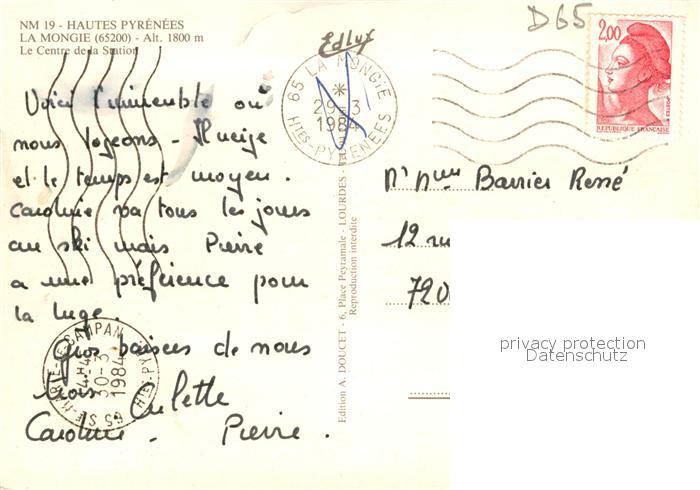 NM 19 - HAUTES PYRÉNÉES
LA MONGIE (65200) - Alt. 1800 m
Le Centre de la Station
D65
Edlux
2,00
REPUBLIQUE FRANÇAISE
POSTES
65 LA MONGIE
*
29-3
1984
HTES-PYRENEES
Voici l'immeuble où
nous logeons - Il neige
et le temps est moyen.
Caroline va tous les jours
au ski mais Pierre
a une préférence pour
la luge.
Gros baisers de nous
trois
Caroline - Pierre.
M Mme Barrier René
12 ru
720
Edition A. DOUCET - 6, Place Peyramale - LOURDES -
Reproduction interdite
65 STE-MARIE-DE-CAMPAN
30-3
1984
HTES-PY
privacy protection
Datenschutz